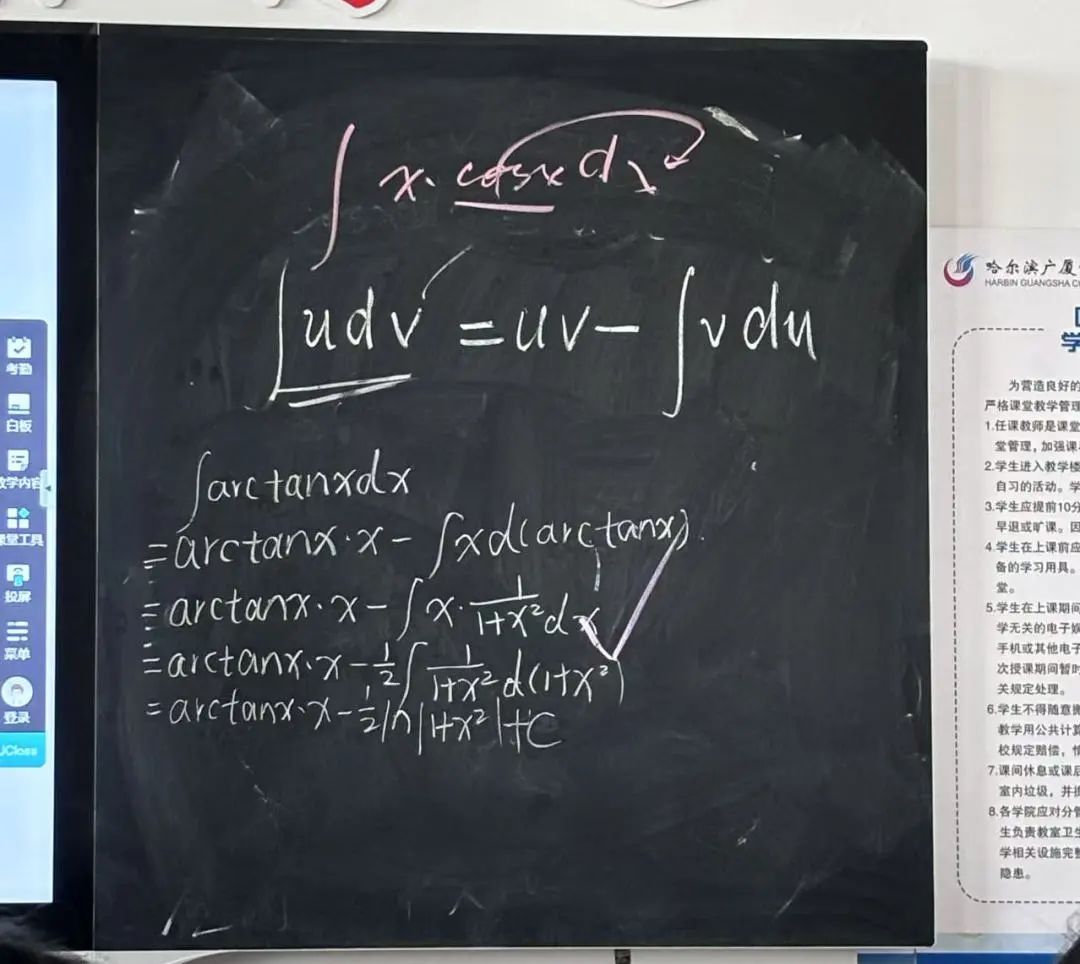 ∫ x·cosx dx
∫udv = uv − ∫vdu
∫arctanxdx
= arctanx·x − ∫xd(arctanx)
= arctanx·x − ∫x·1/(1+x²)dx
= arctanx·x − 1/2∫1/(1+x²)d(1+x²)
= arctanx·x − 1/2ln|1+x²|+C
考勤
白板
教学内容
课堂工具
投屏
菜单
登录
JClass
哈尔滨广厦
HARBIN GUANGSHA
学
为营造良好的
严格课堂教学管理
1.任课教师是课堂
堂管理,加强课
2.学生进入教学楼
自习的活动。学
3.学生应提前10分
早退或旷课。因
4.学生在上课前应
备的学习用具。
堂。
5.学生在上课期间
学无关的电子娱
手机或其他电子
次授课期间暂时
关规定处理。
6.学生不得随意搬
教学用公共计算
校规定赔偿,情
7.课间休息或课后
室内垃圾,并携
8.各学院应对分管
生负责教室卫生
学相关设施完整
隐患。